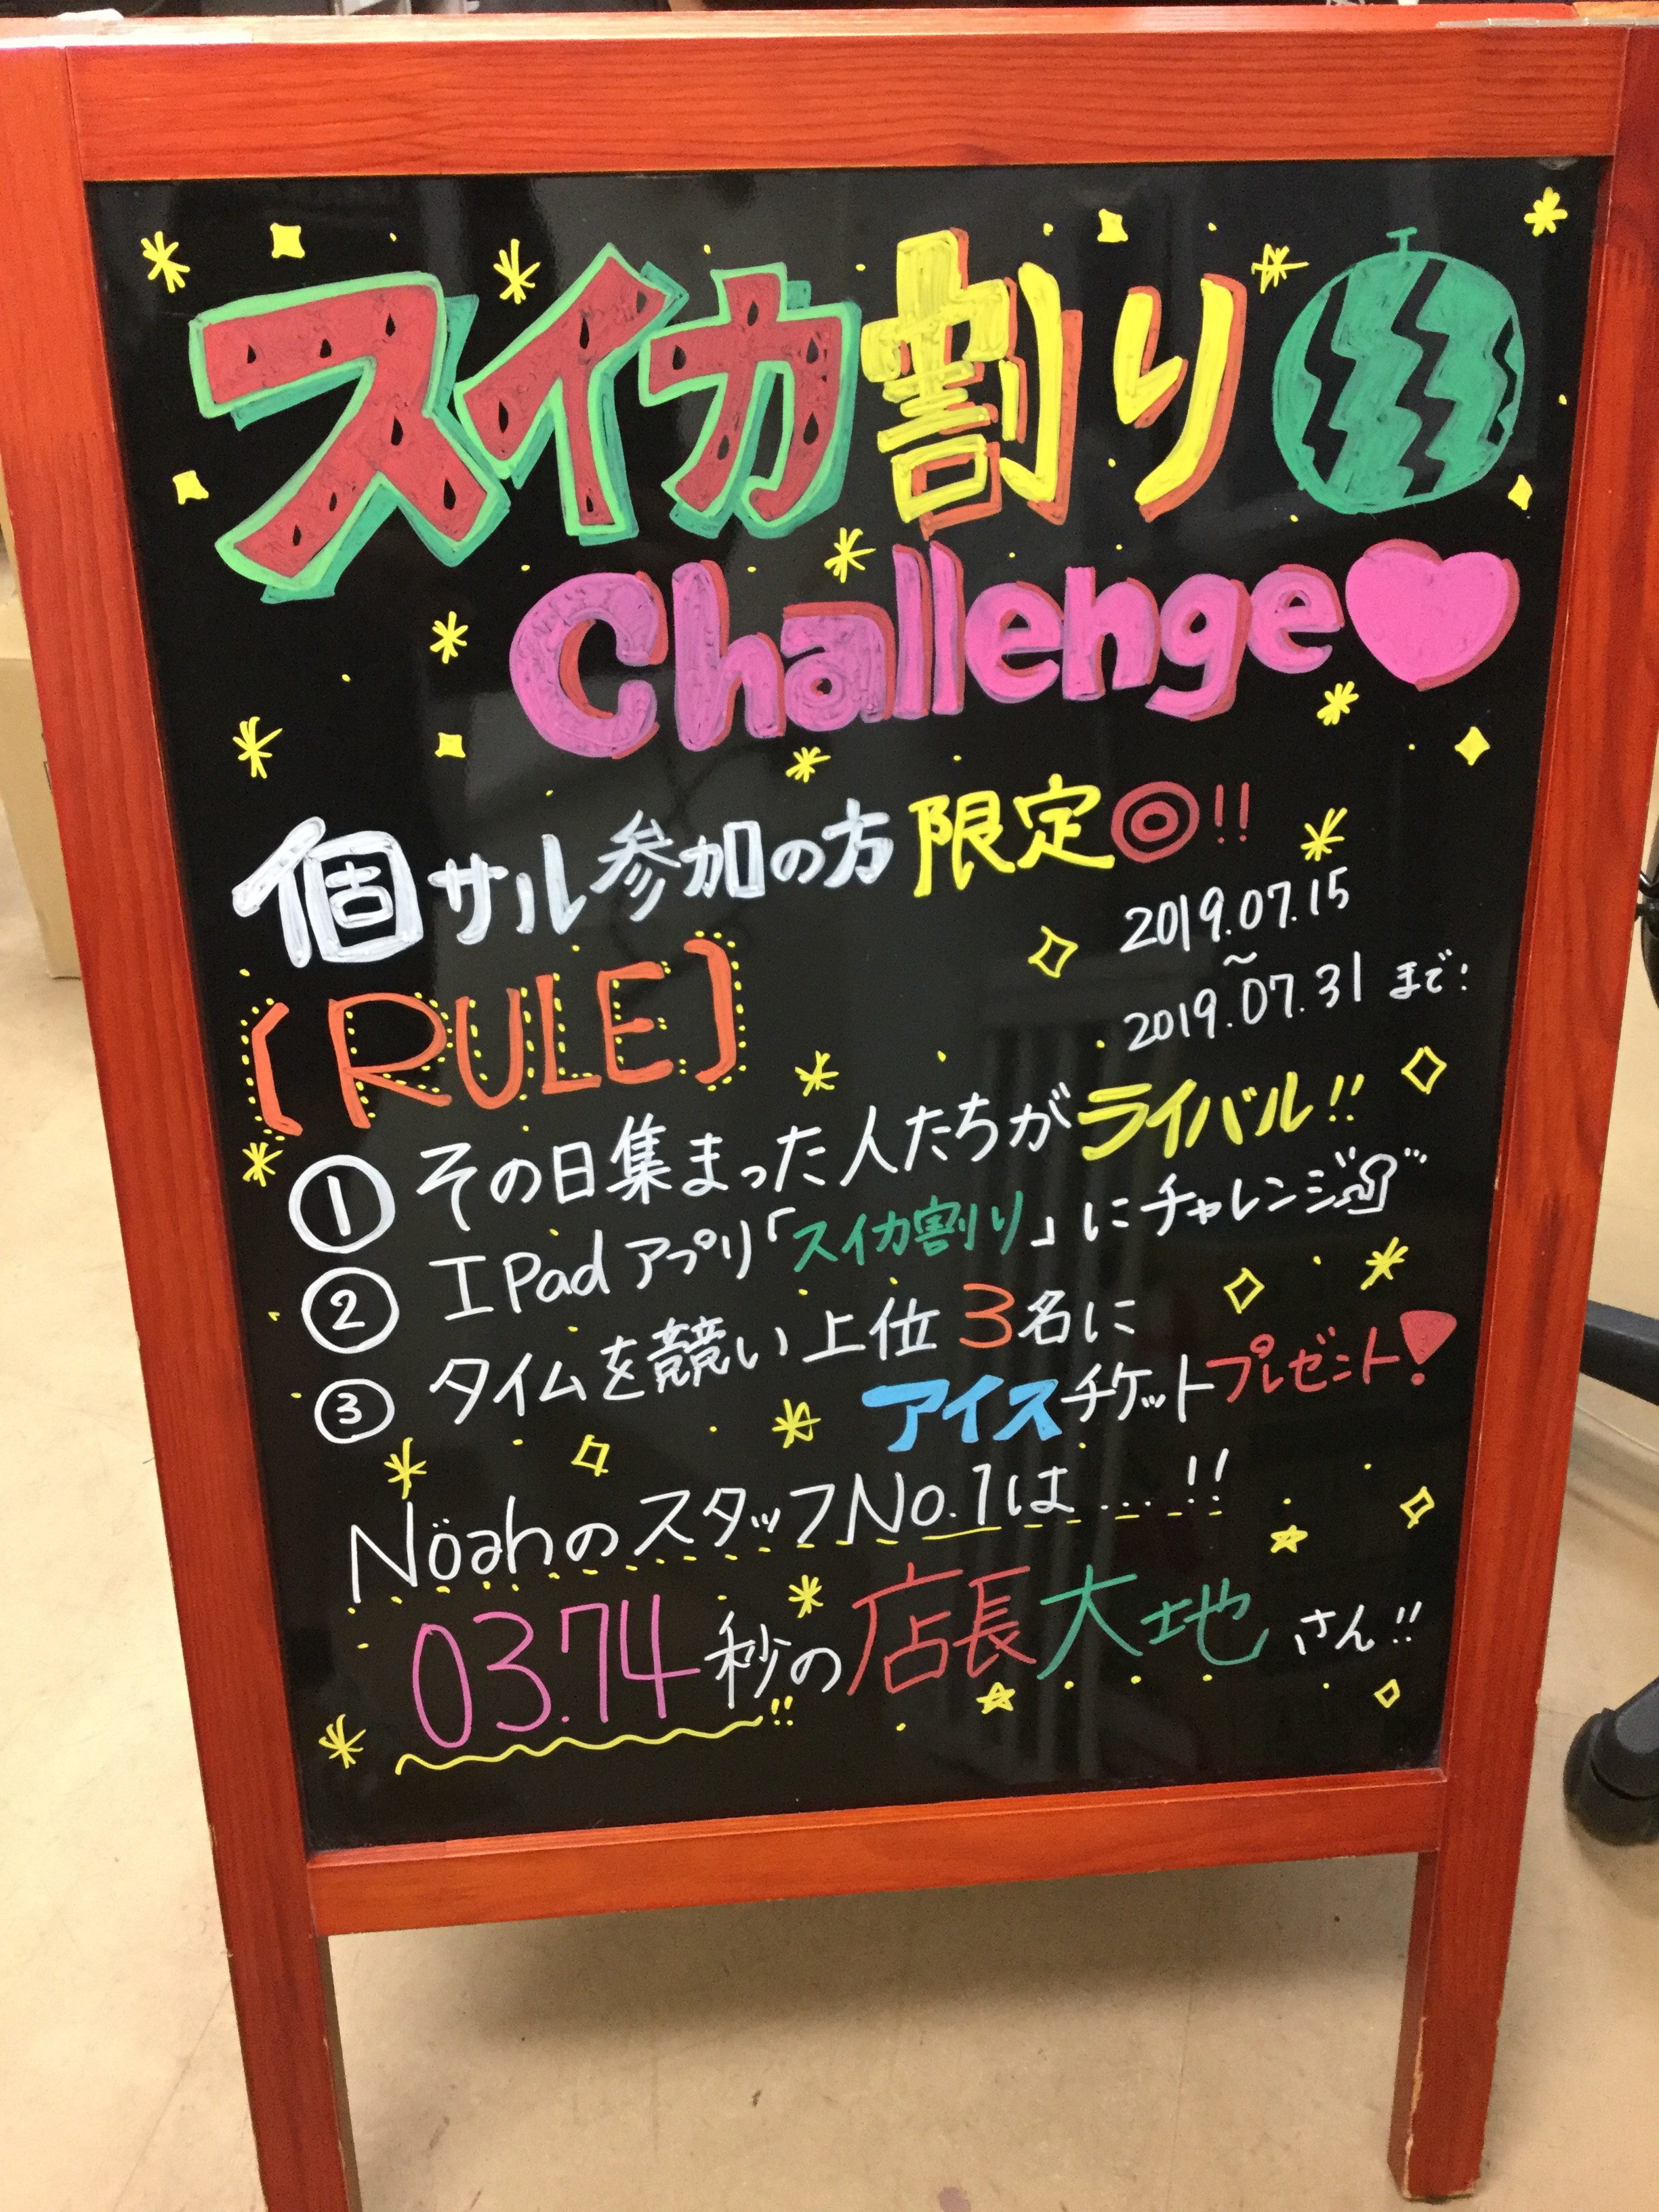 スイカ割り
Challenge
個サル参加の方限定◎!!
2019.07.15
~
2019.07.31 まで!
[RULE]
① その日集まった人たちがライバル!!
② IPadアプリ「スイカ割り」にチャレンジ
③ タイムを競い上位3名に
アイスチケットプレゼント!
NöahのスタッフNo.1は...!!
03.74秒の店長大地さん!!
!!